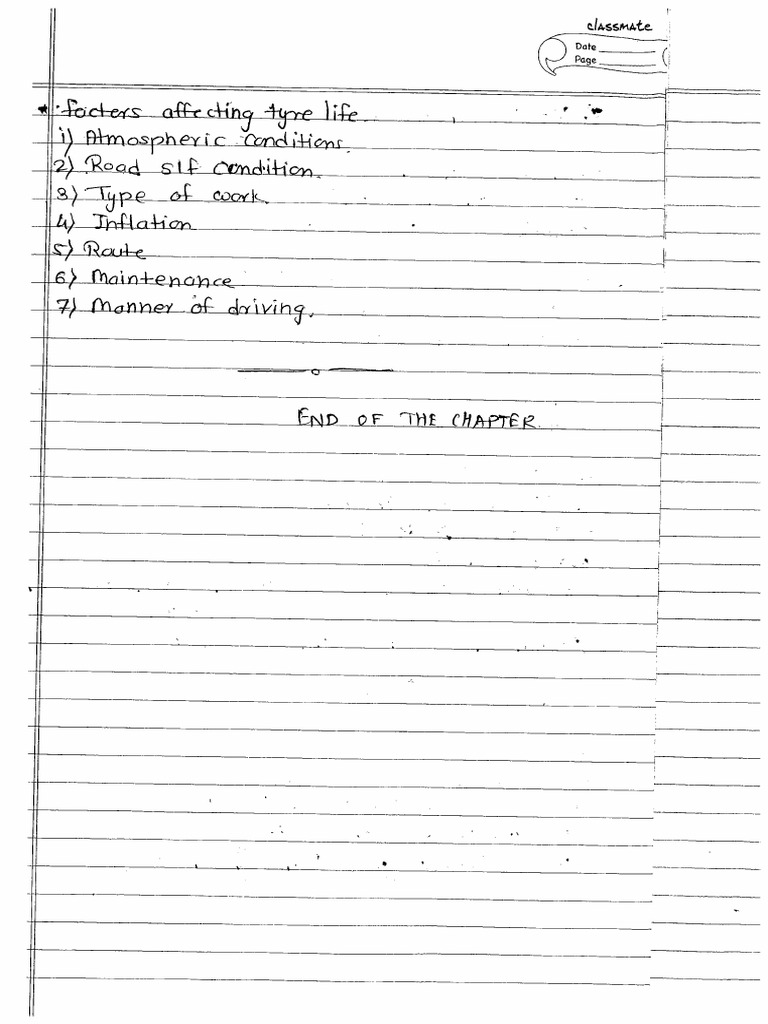 classmate
Date
Page
* facters affecting tyre life
1) Atmospheric conditions.
2) Road slf condition.
3) Type of work.
4) Inflation
5) Route
6) Maintenance
7) Manner of driving.
END OF THE CHAPTER.